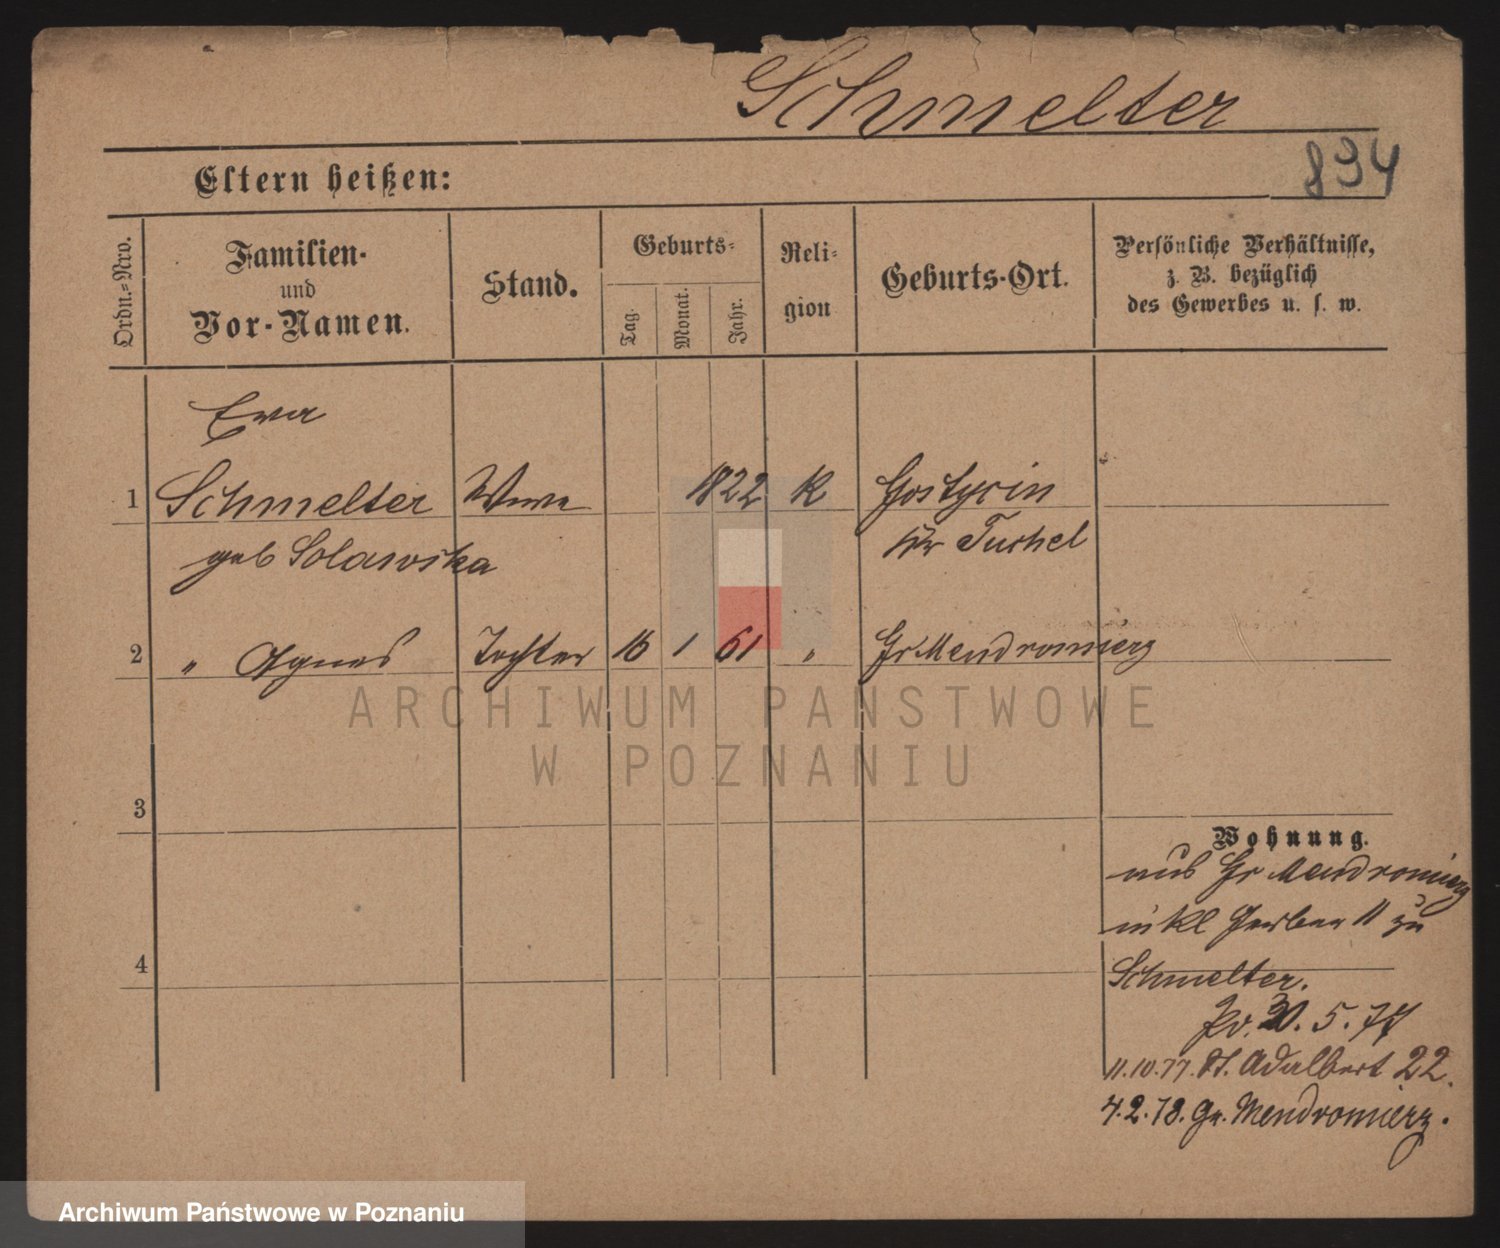 Schmelter
894
Eltern heißen:
Ordn.-Nro.
Familien-
und
Vor-Namen.
Stand.
Geburts-
Tag.
Monat.
Jahr.
Reli-
gion
Geburts-Ort.
Persönliche Verhältnisse,
z. B. bezüglich
des Gewerbes u. s. w.
Eva
1 Schmelter Wwe 1822 K Gostycin
geb Solawska Kr Tuchel
2 " Agnes Tochter 16 1 61 " Gr Mendromierz
3
4
Wohnung.
aus Gr Mendromierz
in kl Gerber 11 zu
Schmelter.
Po. 30. 5. 77
11.10.77. St. Adalbert 22.
4.2.78. Gr. Mendromierz.
ARCHIWUM PAŃSTWOWE
W POZNANIU
Archiwum Państwowe w Poznaniu